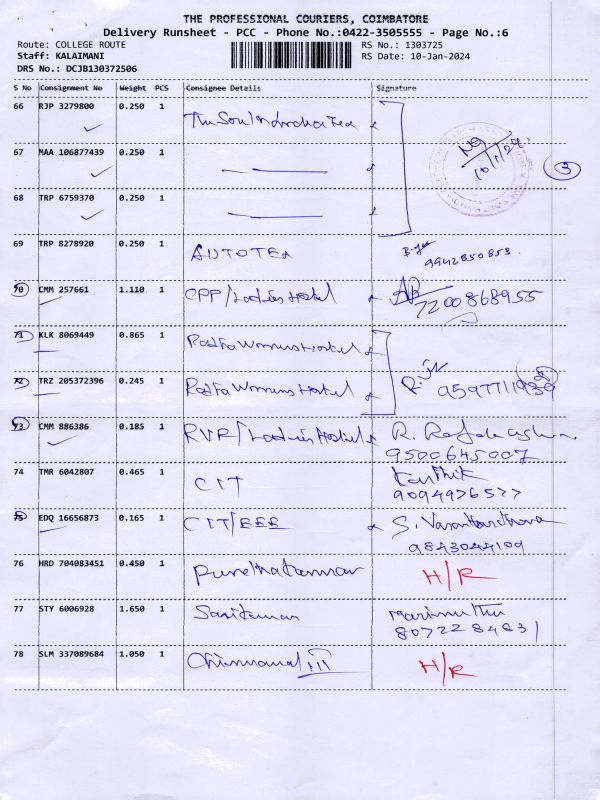 THE PROFESSIONAL COURIERS, COIMBATORE
Delivery Runsheet - PCC - Phone No.:0422-3505555 - Page No.:6
Route: COLLEGE ROUTE
RS No.: 1303725
Staff: KALAIMANI
RS Date: 10-Jan-2024
DRS No.: DCJB130372506
S No Consignment No Weight PCS Consignee Details Signature
66 RJP 3279800 0.250 1
67 MAA 106877439 0.250 1
10/1/24 3
68 TRP 6759370 0.250 1
69 TRP 8278920 0.250 1 AUTOTEX
9942850853.
70 CMM 257661 1.110 1 OPP/Ladies Hostel
7200868955
71 KLK 8069449 0.865 1 Womens Hostel
72 TRZ 205372396 0.245 1 Womens Hostel
73 CMM 886386 0.185 1 RVR/Ladies Hostel R.
9500645007
74 TMR 6042807 0.465 1 CIT Karthik
9094976577
75 EDQ 16656873 0.165 1 CIT/EEE S.
9843044109
76 HRD 704083451 0.450 1 H/R
77 STY 6006928 1.650 1 Marimuthu
78 SLM 337089684 1.050 1 H/R